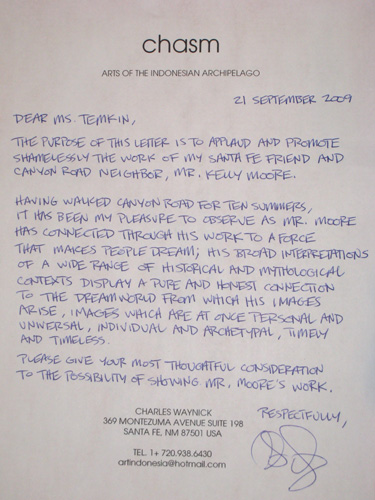 chasm
ARTS OF THE INDONESIAN ARCHIPELAGO
21 SEPTEMBER 2009
DEAR MS. TEMKIN,
THE PURPOSE OF THIS LETTER IS TO APPLAUD AND PROMOTE
SHAMELESSLY THE WORK OF MY SANTA FE FRIEND AND
CANYON ROAD NEIGHBOR, MR. KELLY MOORE.
HAVING WALKED CANYON ROAD FOR TEN SUMMERS,
IT HAS BEEN MY PLEASURE TO OBSERVE AS MR. MOORE
HAS CONNECTED THROUGH HIS WORK TO A FORCE
THAT MAKES PEOPLE DREAM; HIS BROAD INTERPRETATIONS
OF A WIDE RANGE OF HISTORICAL AND MYTHOLOGICAL
CONTEXTS DISPLAY A PURE AND HONEST CONNECTION
TO THE DREAMWORLD FROM WHICH HIS IMAGES
ARISE, IMAGES WHICH ARE AT ONCE PERSONAL AND
UNIVERSAL, INDIVIDUAL AND ARCHETYPAL, TIMELY
AND TIMELESS.
PLEASE GIVE YOUR MOST THOUGHTFUL CONSIDERATION
TO THE POSSIBILITY OF SHOWING MR. MOORE'S WORK.
RESPECTFULLY,
CHARLES WAYNICK
369 MONTEZUMA AVENUE SUITE 198
SANTA FE, NM 87501 USA
TEL. 1+ 720.938.6430
artindonesia@hotmail.com